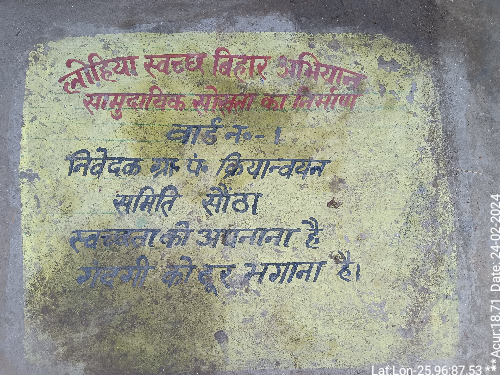 लोहिया स्वच्छ बिहार अभियान
सामुदायिक सोखता का निर्माण
वार्ड नं०-1
निवेदक ग्रा० पं० क्रियान्वयन
समिति सौठा
स्वच्छता को अपनाना है
गंदगी को दूर भगाना है।
Lat Lon-25.96:87.53**
**Acur18.71 Date: 24-02-2024